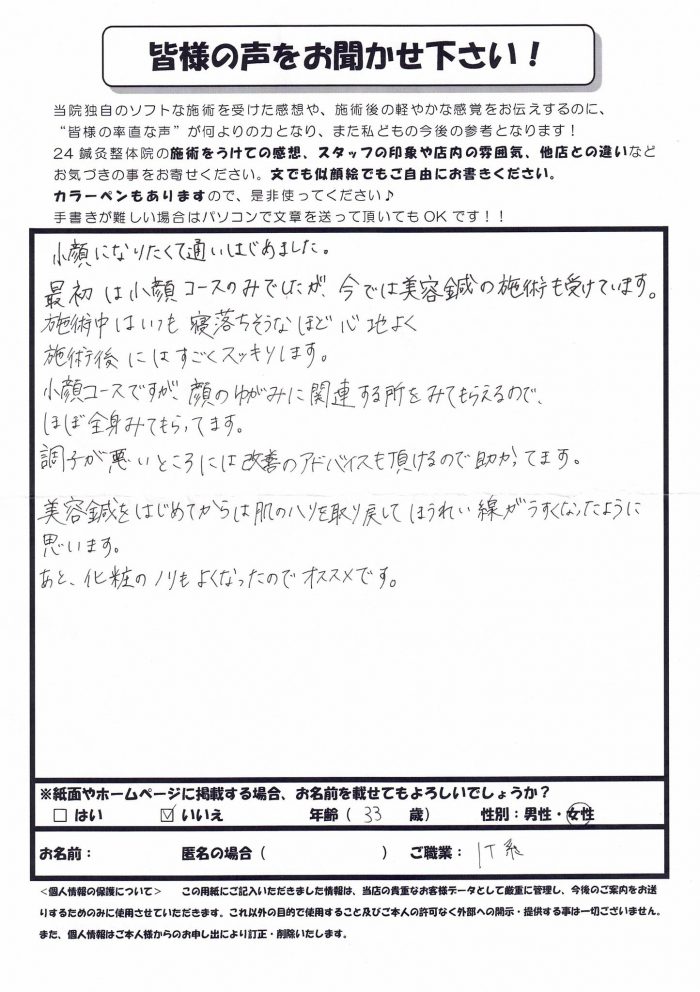 皆様の声をお聞かせ下さい！
当院独自のソフトな施術を受けた感想や、施術後の軽やかな感覚をお伝えするのに、
“皆様の率直な声”が何よりの力となり、また私どもの今後の参考となります！
24鍼灸整体院の施術をうけての感想、スタッフの印象や店内の雰囲気、他店との違いなど
お気づきの事をお寄せください。文でも似顔絵でもご自由にお書きください。
カラーペンもありますので、是非使ってください♪
手書きが難しい場合はパソコンで文章を送って頂いてもOKです！！
小顔になりたくて通いはじめました。
最初は小顔コースのみでしたが、今では美容鍼の施術も受けています。
施術中はいつも寝落ちそうなほど心地よく
施術後にはすごくスッキリします。
小顔コースですが、顔のゆがみに関連する所をみてもらえるので、
ほぼ全身みてもらってます。
調子が悪いところには改善のアドバイスも頂けるので助かってます。
美容鍼をはじめてからは肌のハリを取り戻してほうれい線がうすくなったように
思います。
あと、化粧のノリもよくなったのでオススメです。
※紙面やホームページに掲載する場合、お名前を載せてもよろしいでしょうか？
□ はい ☑ いいえ 年齢（ 33 歳） 性別：男性・女性
お名前： 匿名の場合（ ） ご職業： IT系
＜個人情報の保護について＞ この用紙にご記入いただきました情報は、当店の貴重なお客様データとして厳重に管理し、今後のご案内をお送
りするためのみに使用させていただきます。これ以外の目的で使用すること及びご本人の許可なく外部への開示・提供する事は一切ございません。
また、個人情報はご本人様からのお申し出により訂正・削除いたします。